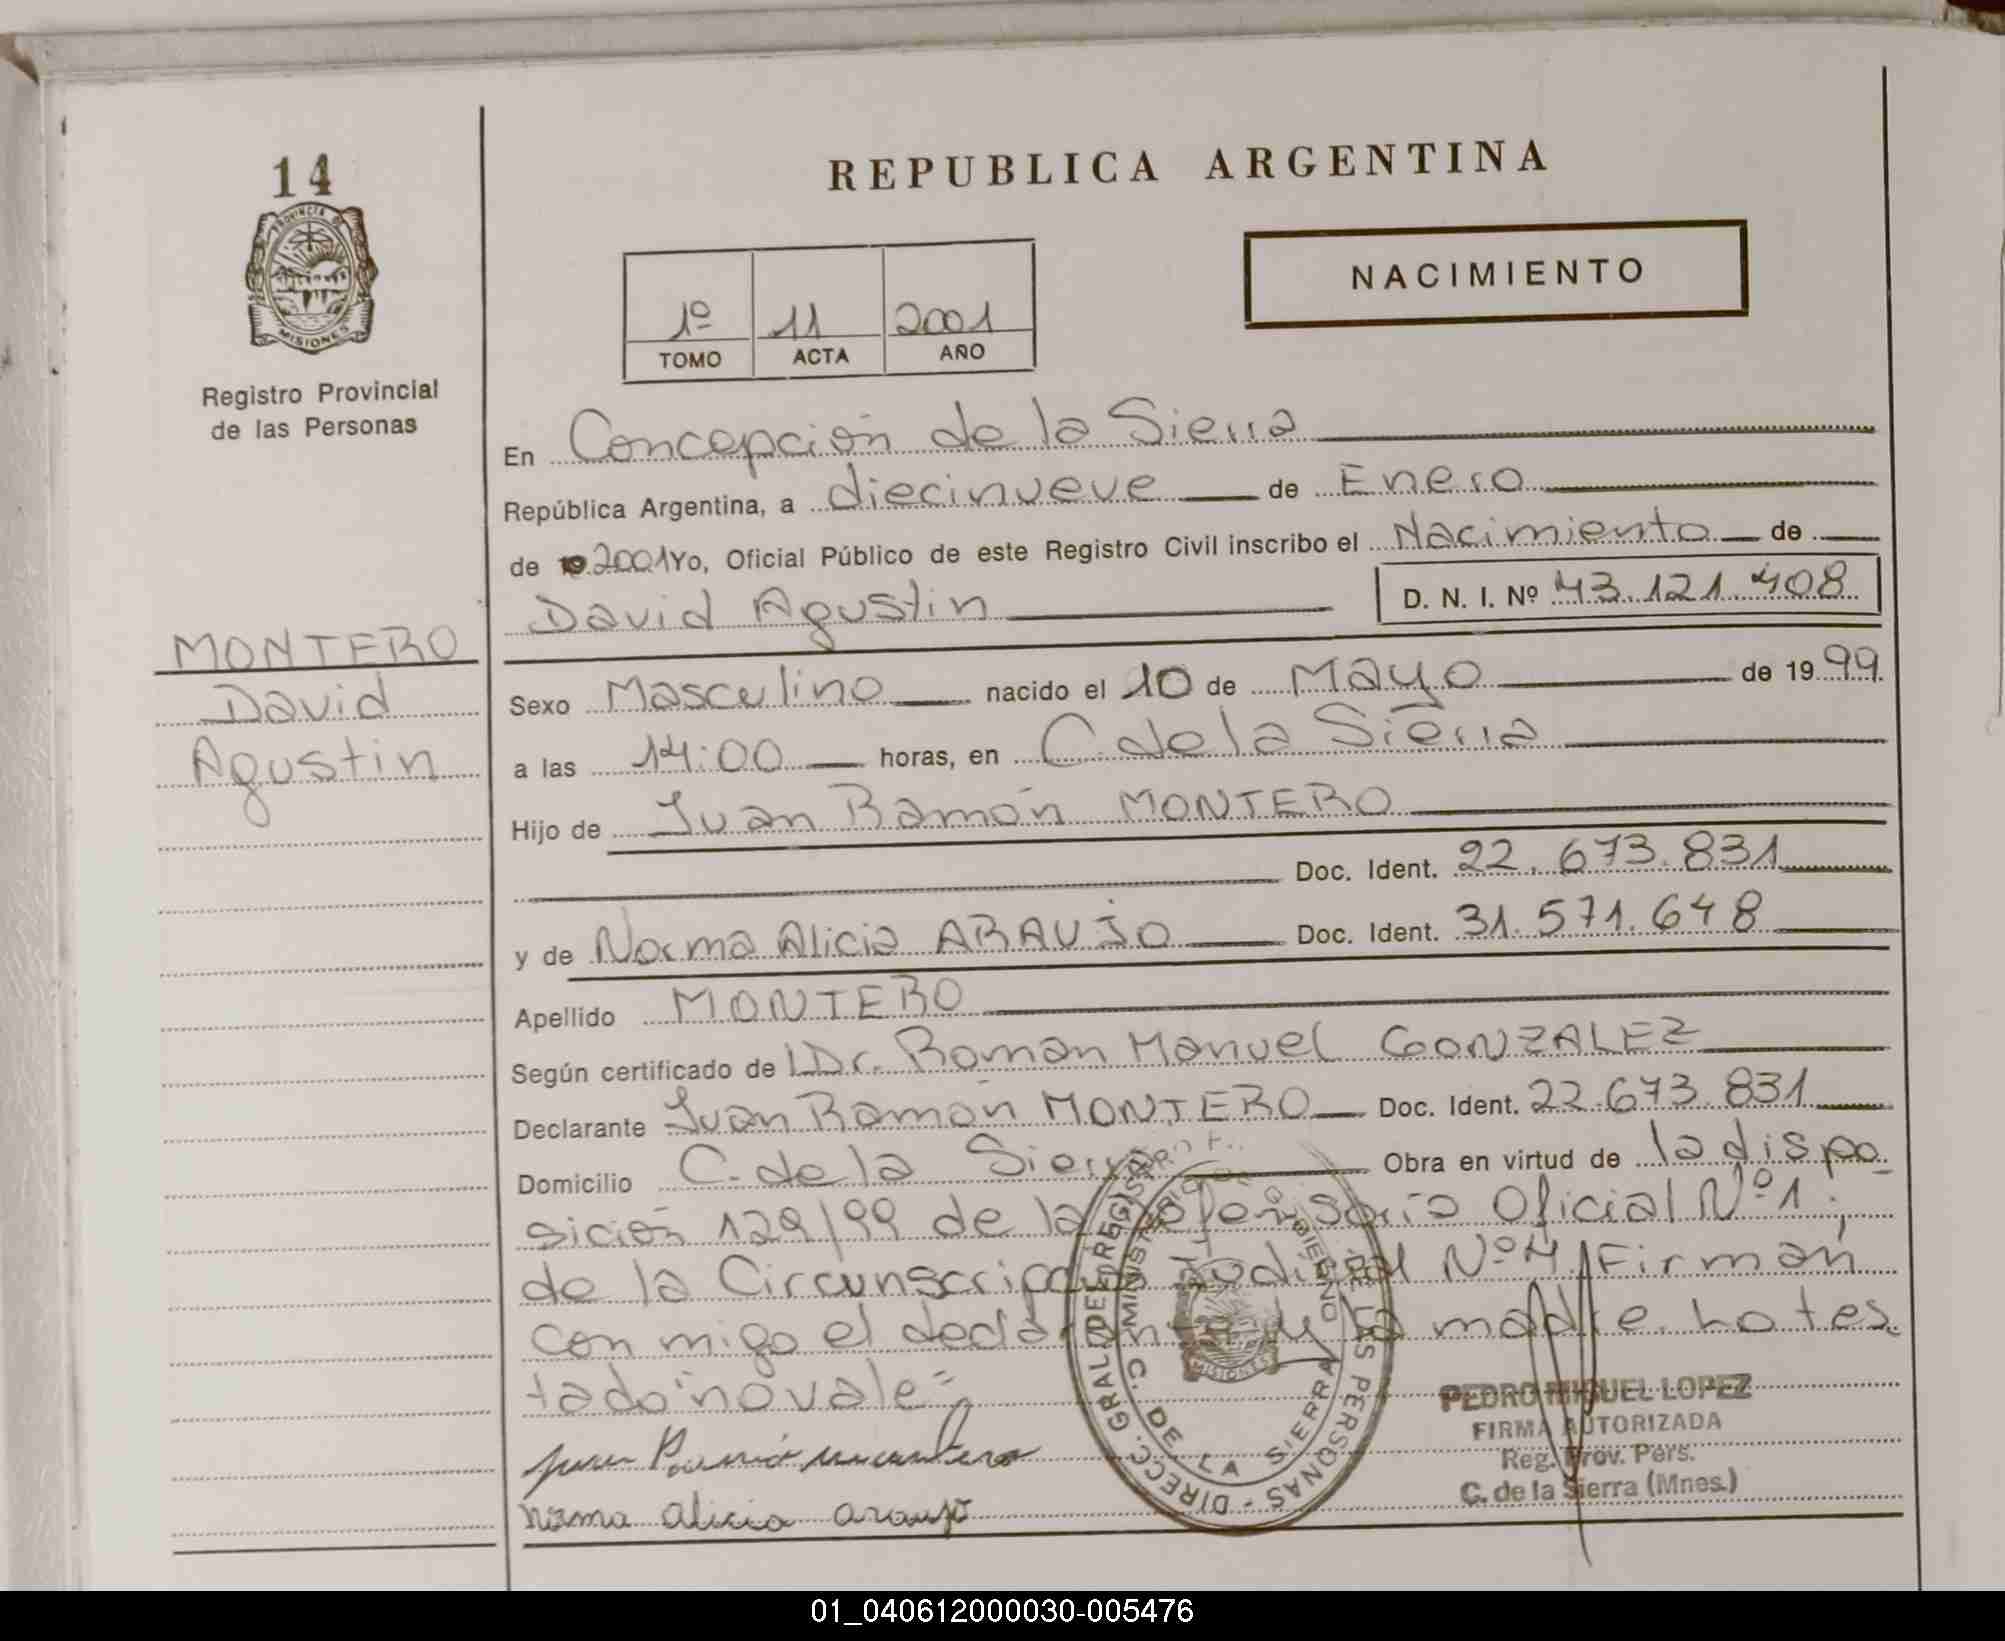 14
PROVINCIA DE
MISIONES
Registro Provincial
de las Personas
MONTERO
David
Agustin
REPUBLICA ARGENTINA
NACIMIENTO
1º 11 2001
TOMO ACTA AÑO
En Concepción de la Sierra
República Argentina, a diecinueve de Enero
de 2001 Yo, Oficial Público de este Registro Civil inscribo el Nacimiento de
David Agustin D. N. I. Nº 43.121.408
Sexo Masculino nacido el 10 de Mayo de 1999
a las 14:00 horas, en C. de la Sierra
Hijo de Juan Ramón MONTERO
Doc. Ident. 22.673.831
y de Norma Alicia ARAUJO Doc. Ident. 31.571.648
Apellido MONTERO
Según certificado de Dr. Roman Manuel GONZALEZ
Declarante Juan Ramón MONTERO Doc. Ident. 22.673.831
Domicilio C. de la Sierra Obra en virtud de la dispo
sición 129/99 de la Defensoria Oficial Nº 1;
de la Circunscripción Judicial Nº 4 Firman
con migo el declarante y la madre. Lo tes
tado "no vale"
Juan Ramón montero
norma alicia araujo
DIRECC. GRAL. DEL REGIST. DE LAS PERSONAS
MINISTERIO DE GOBIERNO
C. DE LA SIERRA
MISIONES
PEDRO MIGUEL LOPEZ
FIRMA AUTORIZADA
Reg. Prov. Pers.
C. de la Sierra (Mnes.)
01_040612000030-005476